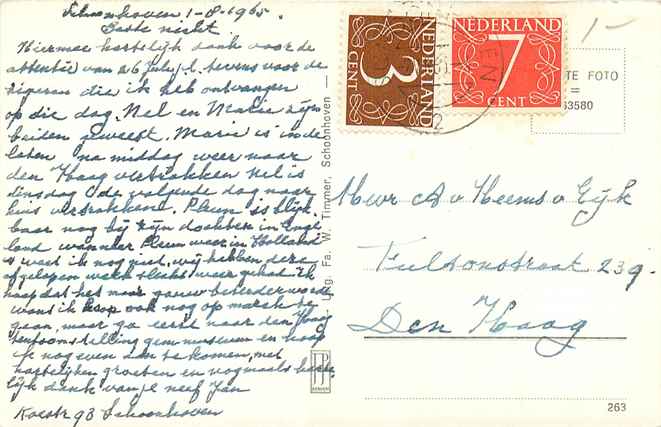 Schoonhoven 1-8-1965.
Beste nicht
Hiermee hartelijk dank voor de
attentie van 26 July j.l. tevens voor de
sigaren die ik heb ontvangen
op die dag. Nel en Marie zijn
beiden geweest. Marie is in de
laten na middag weer naar
den Haag vertrokken Nel is
dinsdag de volgende dag naar
huis vertrokken. Pleun is blijk
baar nog bij zijn dochter in Enge
land wanneer Pleun weer in Holland
is weet ik nog niet, wij hebben deze
afgelopen week slecht weer gehad ik
hoop dat het maar gauw beter der wordt
want ik hoop ook nog op marsch te
gaan, maar ga eerst naar den Haag
tentoonstelling gem museum en hoop
je nog even aan te komen, met
hartelijken groeten en nogmaals harte
lijk dank van je neef Jan
Koestr 93 Schoonhoven
Uitg. Fa. W. Timmer, Schoonhoven —
NEDERLAND
3
CENT
NEDERLAND
7
CENT
TE FOTO
=
3580
Mevr A v Heems v Eijk
239
Den Haag
JP
263